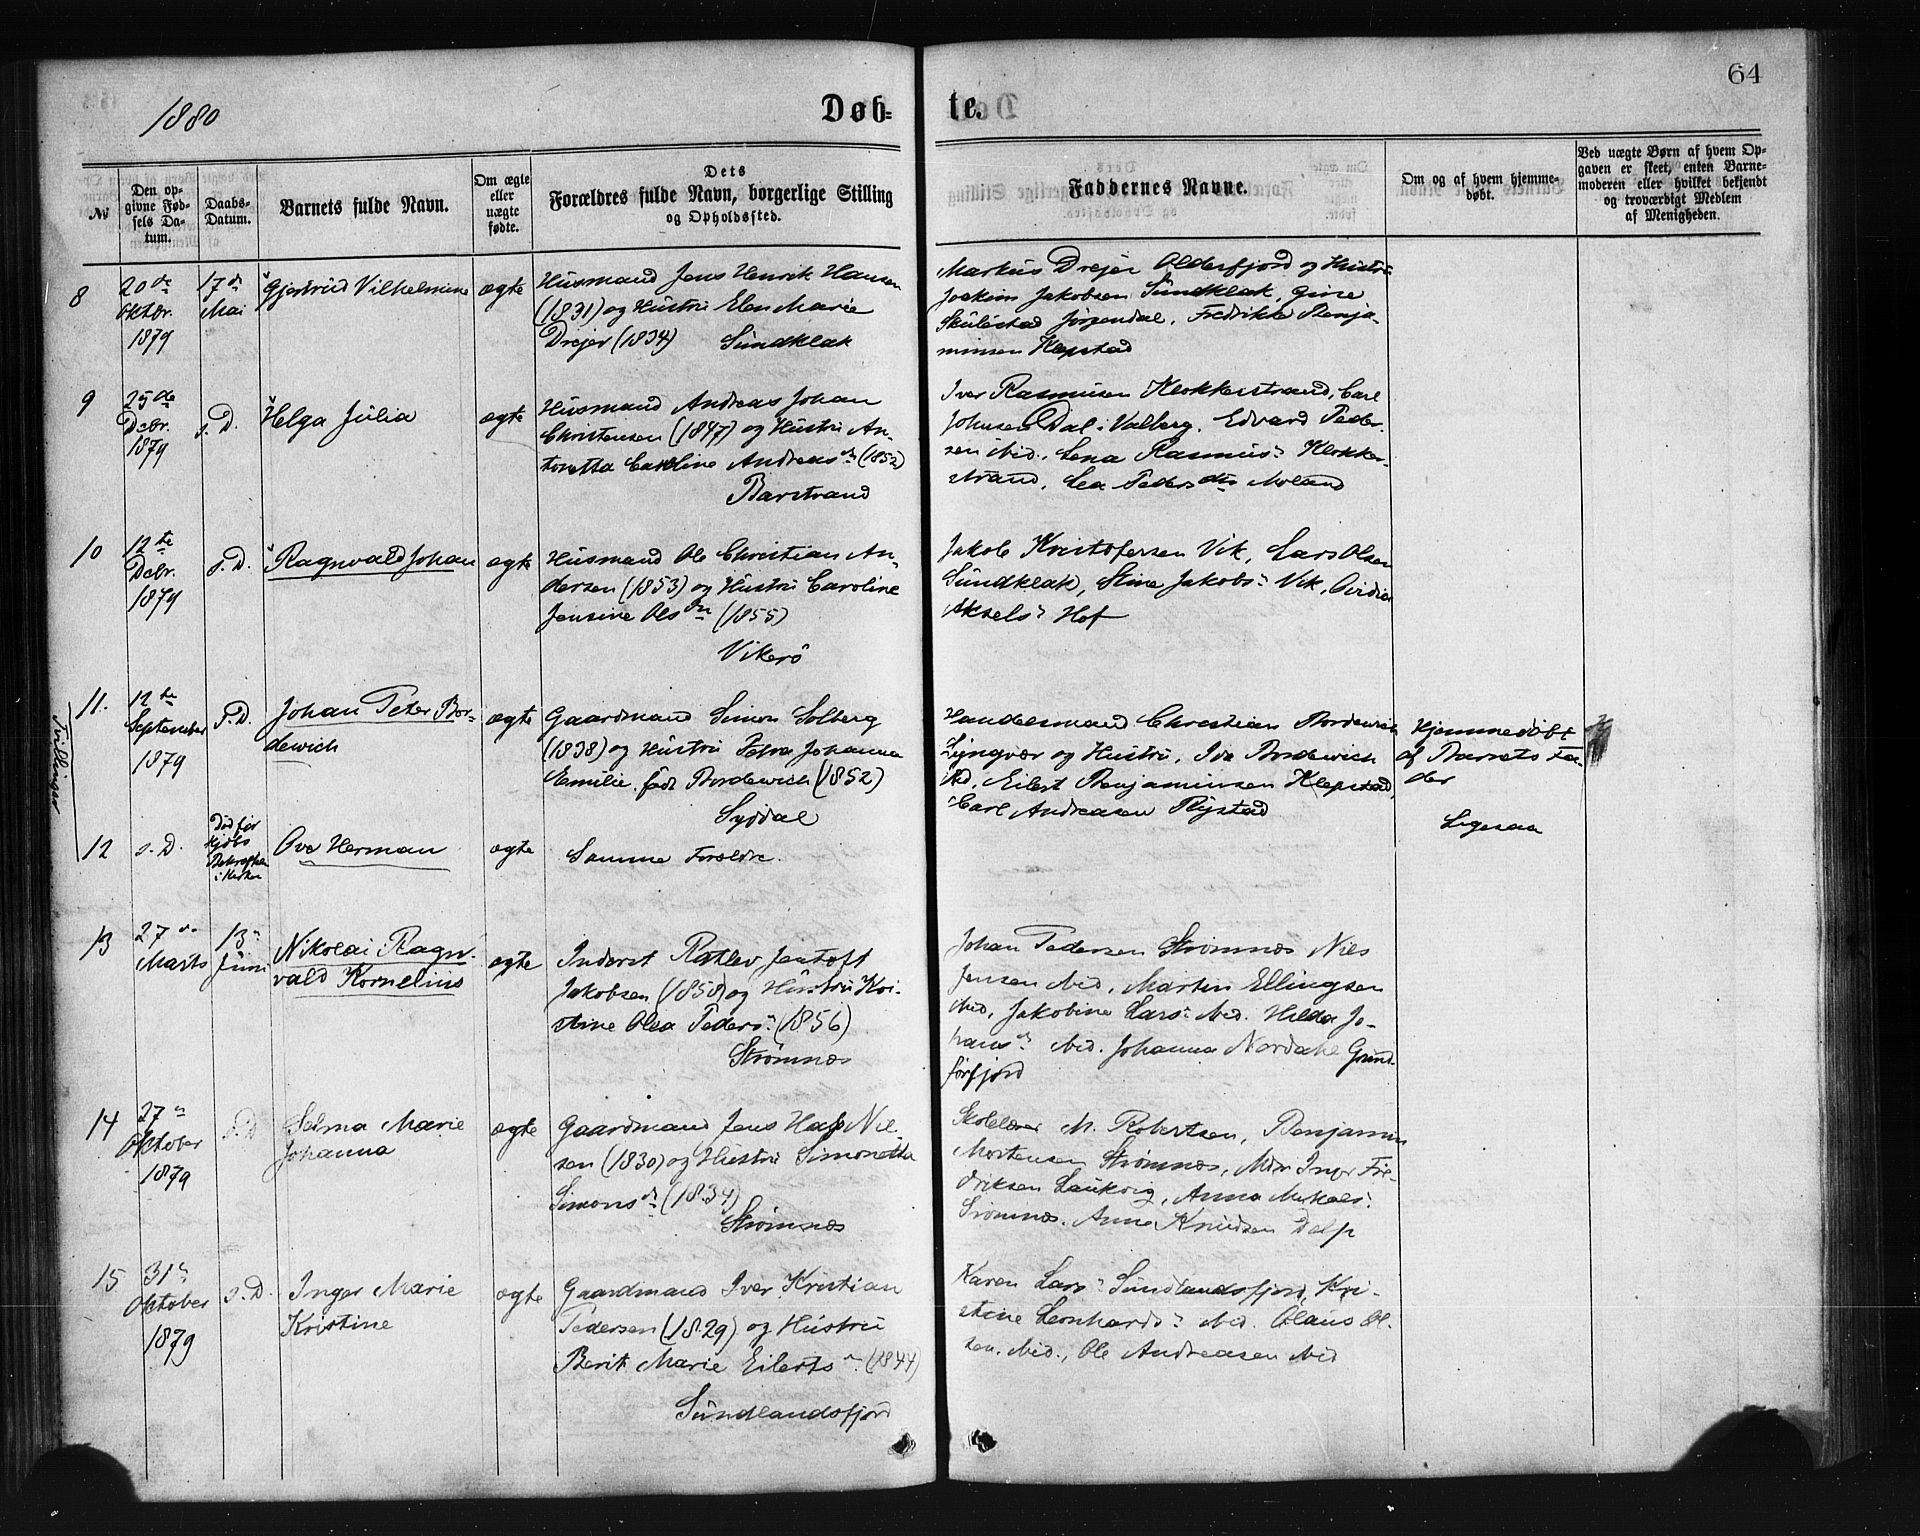 64
1880
Døb=
te.
№
Den op=
givne Fød=
sels Da=
tum.
Daabs=
Datum.
Barnets fulde Navn.
Om ægte
eller
uægte
fødte.
Dets
Forældres fulde Navn, borgerlige Stilling
og Opholdssted.
Faddernes Navne.
Om og af hvem hjemme=
døbt.
Ved uægte Børn af hvem Op=
gaven er skeet, enten Barne=
moderen eller hvilket bekjendt
og troværdigt Medlem
af Menigheden.
8
20de
Oktbr.
1879
17de
Mai
Gjertrud Vilhelmine
ægte
Husmand Jens Henrik Hansen
(1831) og Hustru Elen Marie
Drejer (1834) Sundklak
Markus Drejer Olderfjord og Hustru
Joakim Jakobsen Sundklak, Gine
Skulestad Jørgendal, Fredrikke Benja-
minsen Klepstad
9
25de
Debr.
1879
s. D.
Helga Julia
ægte
Husmand Andreas Johan
Christensen (1847) og Hustru An-
tonetta Caroline Andreasdr (1852)
Barstrand
Iver Rasmusen Klokkerstrand, Carl
Johnsen Dal i Valberg, Edvard Peder-
sen ibid., Lena Rasmus: Klokker-
strand, Lea Pedersdtr Moland
10
12te
Debr.
1879
s. D.
Ragnvald Johan
ægte
Husmand Ole Christian An-
dersen (1853) og Hustru Caroline
Jensine Olsdtr (1855)
Vikerö
Jakob Kristofersen Vik, Lars Olsen
Sundklak, Stine Jakobs: Vik, Ovidia
Aksels: Hof
Tvillinger
11.
12te
September
1879
s. D.
Johan Peter Bor-
dewich
ægte
Gaardmand Simon Solberg
(1838) og Hustru Petra Johanna
Emilie, født Bordewich (1852)
Syddal
Handelsmand Christian Bordewich
Lyngvær og Hustru, Ida Bordewich
ibid, Eilert Benjaminsen Klepstad,
Carl Andreasen Rystad
Hjemmedöbt
af Barnets Fa-
der
12
s. D.
Død før
i Kirken
Ove Herman
ægte
Samme Forældre.
Ligesaa
13
27de
Marts
13de
Juni
Nikolai Ragn-
vald Kornelius
ægte
Inderst Ratlev Jentoft
Jakobsen (1858) og Hustru Kri-
stine Olea Peders: (1856)
Strømnæs
Johan Pedersen Strømnæs Niels
Jensen ibid, Martin Ellingsen
ibid, Jakobine Lars: ibid. Hilda Jo-
hansdr ibid. Johanna Nordahl Grund-
førfjord
14
27de
Oktober
1879
s. D
Selma Marie
Johanna
ægte
Gaardmand Jens Hass Niel-
sen (1830) og Hustru Simonetta
Simonsdr (1834)
Strømnæs
Skolelærer M. Robertsen, Benjamin
Mortensen Strømnæs, Mdm Inger Fre-
driksen Laukvig, Anna Mikaels:
Srømnæs. Anne Knudsen Delp
15
31te
Oktober
1879
s. D.
Inger Marie
Kristine
ægte
Gaardmand Iver Kristian
Pedersen (1829) og Hustru
Berit Marie Eilerts: (1844)
Sundlandsfjord
Karen Lars: Sundlandsfjord, Kri-
stine Leonhards: ibid. Olaus Ol-
sen, ibid., Ole Andreasen ibid